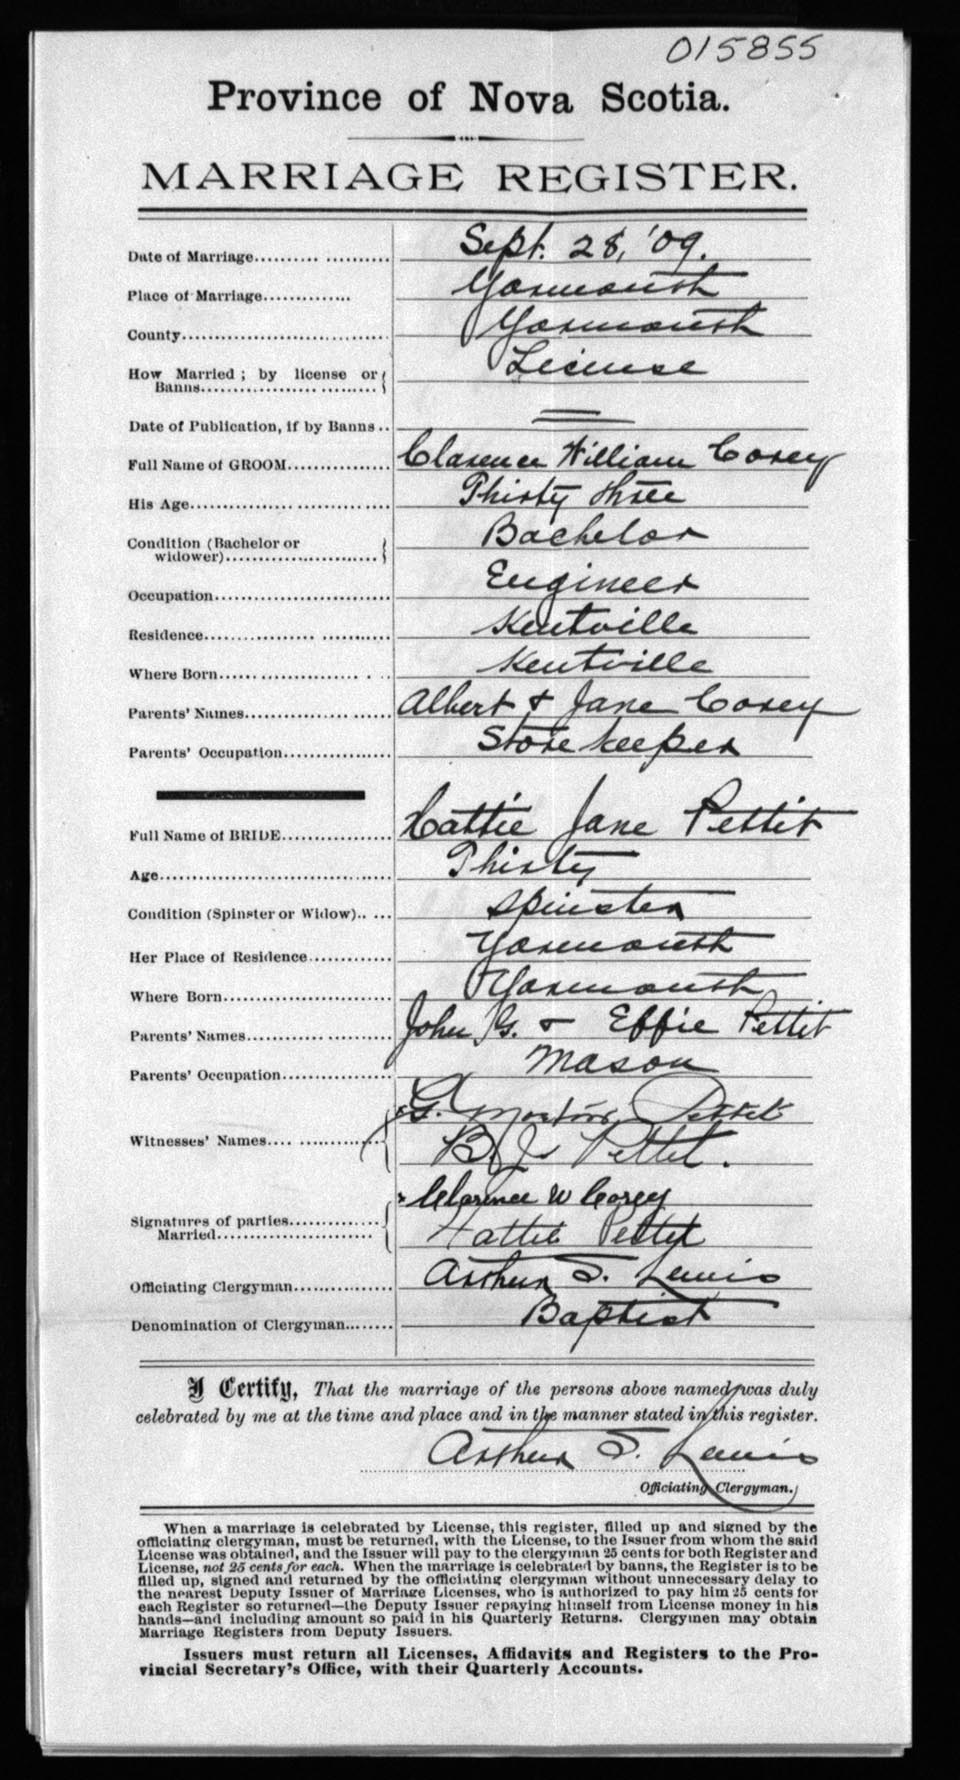 015855
Province of Nova Scotia.
MARRIAGE REGISTER.
Date of Marriage.......... .......... Sept. 28, '09.
Place of Marriage.............. Yarmouth
County................................ Yarmouth
How Married ; by license or
Banns.................. ......... { License
Date of Publication, if by Banns ..
Full Name of GROOM................ Clarence William Corey
His Age................ ............ Thirty three
Condition (Bachelor or
widower)........................ { Bachelor
Occupation........................... Engineer
Residence................. ........... Kentville
Where Born..................... . . Kentville
Parents' Names................ ...... Albert & Jane Corey
Parents' Occupation................. Store keeper
Full Name of BRIDE................. Hattie Jane Pettit
Age.................................... Thirty
Condition (Spinster or Widow).. ... Spinster
Her Place of Residence............. Yarmouth
Where Born.......................... Yarmouth
Parents' Names............ .......... John G. & Effie Pettit
Parents' Occupation................. Mason
x G. Pettit
Witnesses' Names.... .............. { B. J. Pettit.
x Clarence W Corey
Signatures of parties..............
Married......................... { Hattie Pettit
Officiating Clergyman............... Arthur S. Lewis
Denomination of Clergyman........ Baptist
I Certify, That the marriage of the persons above named was duly
celebrated by me at the time and place and in the manner stated in this register.
Arthur S. Lewis
Officiating Clergyman.
When a marriage is celebrated by License, this register, filled up and signed by the
officiating clergyman, must be returned, with the License, to the Issuer from whom the said
License was obtained, and the Issuer will pay to the clergyman 25 cents for both Register and
License, not 25 cents for each. When the marriage is celebrated by banns, the Register is to be
filled up, signed and returned by the officiating clergyman without unnecessary delay to
the nearest Deputy Issuer of Marriage Licenses, who is authorized to pay him 25 cents for
each Register so returned—the Deputy Issuer repaying himself from License money in his
hands—and including amount so paid in his Quarterly Returns. Clergymen may obtain
Marriage Registers from Deputy Issuers.
Issuers must return all Licenses, Affidavits and Registers to the Pro-
vincial Secretary's Office, with their Quarterly Accounts.